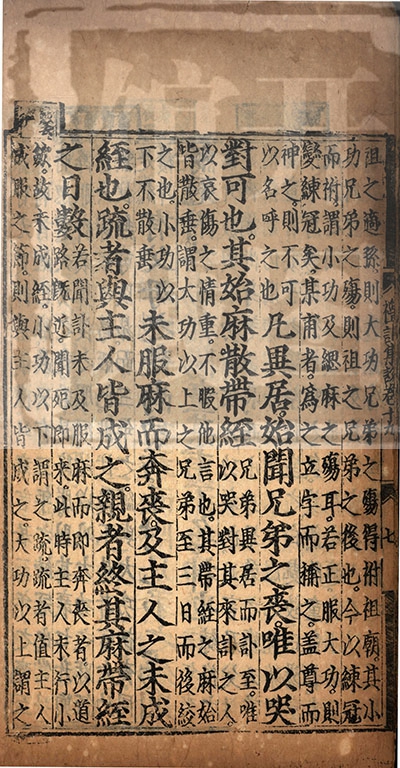 祖之適孫則大功兄弟之殤得祔祖廟其小
功兄弟之殤則祖之兄弟之後也今以練冠
而祔謂小功及緦麻之殤耳若正服大功則
變練冠矣某甫者為之立字而稱之蓋尊而
神之則不可
以名呼之也
凡異居始聞兄弟之喪唯以哭
對可也其始麻散帶絰
兄弟異居而訃至唯
以哭對其來訃之人
以哀傷之情重不服他言也其帶絰之麻始
皆散垂謂大功以上之兄弟至三日而後絞
之也小功以
下不散垂
未服麻而奔喪及主人之未成
絰也疏者與主人皆成之親者終其麻帶絰
之日數
若聞訃未及服麻而即奔喪者以道
路既近聞死即來此時主人未行小
斂故未成絰小功以下謂之疏疏者值主人
成服之節則與主人皆成之大功以上謂之
禮記集說卷十九
七